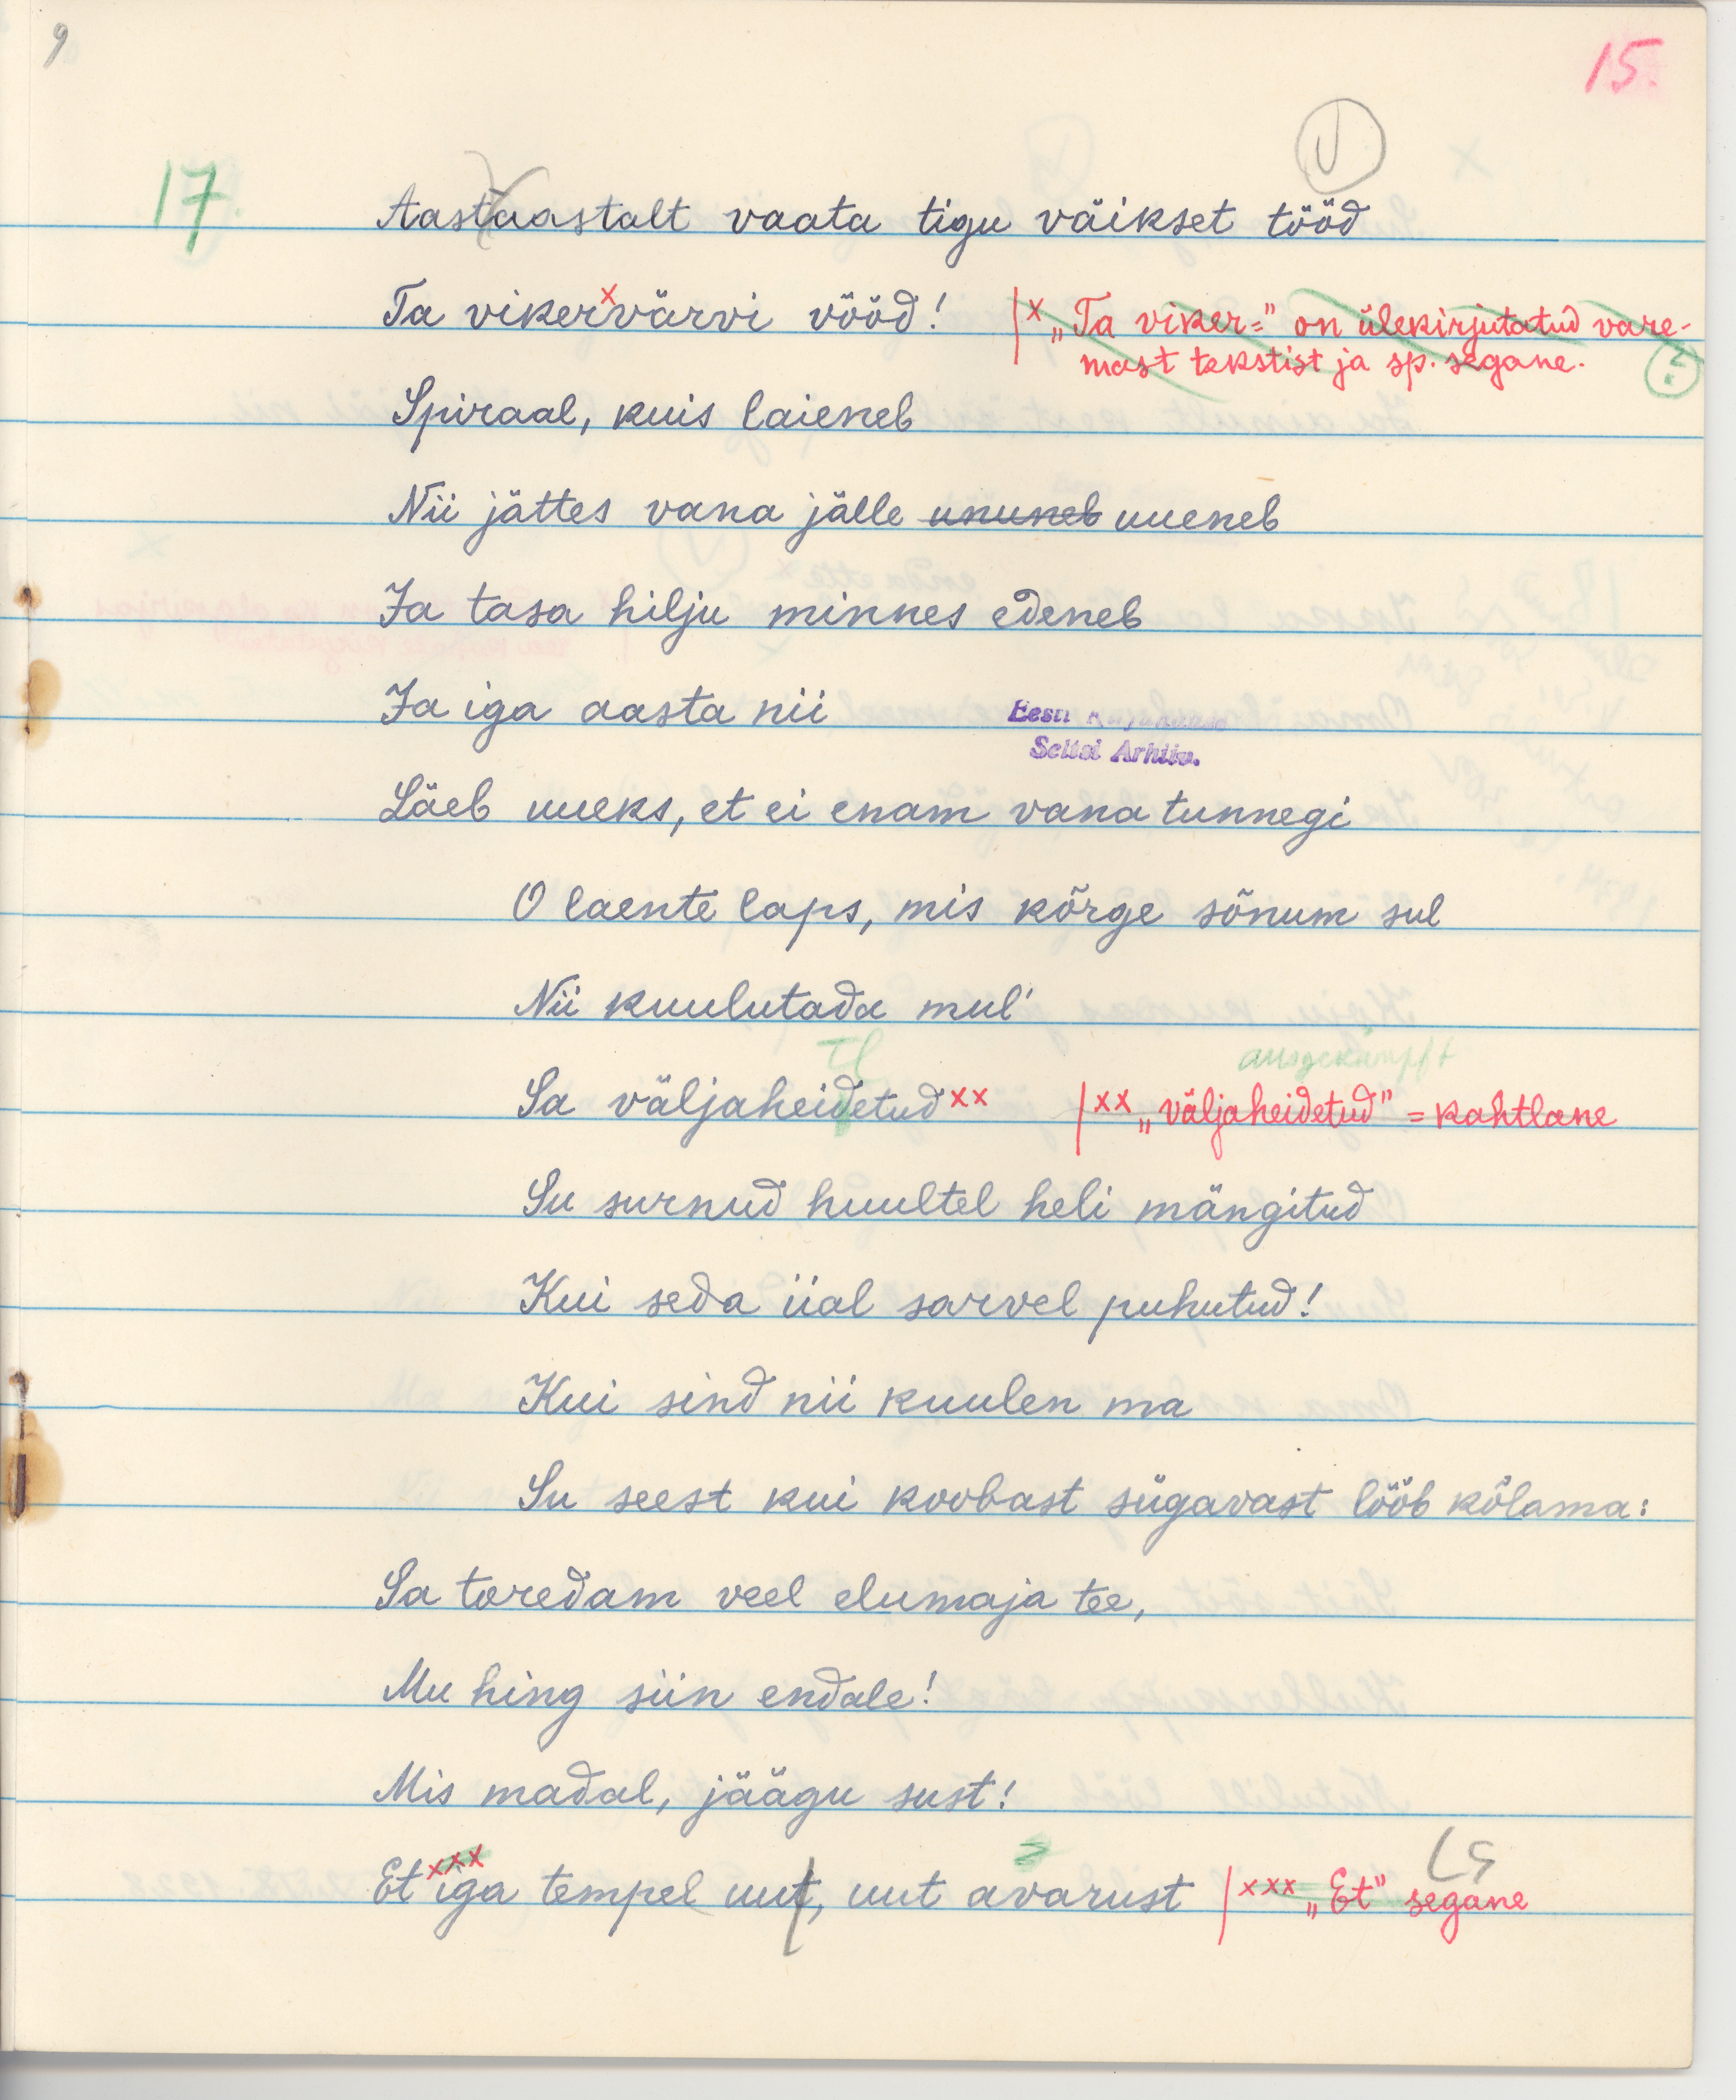 9
15.
17.
Aastaastalt vaata tigu väikset tööd
Ta vikerxvärvi vööd! |x „Ta viker=" on ülekirjutatud vare-
mast tekstist ja sp. segane.
Spiraal, kuis laieneb
Nii jättes vana jälle ununeb uueneb
Ja tasa hilju minnes edeneb
Ja iga aasta nii
Eesti
Seltsi Arhiiv.
Läeb uueks, et ei enam vana tunnegi
O laente laps, mis kõrge sõnum sul
Nii kuulutada mul'
ausgekämpft
Sa väljaheidetud xx |xx „väljaheidetud" = kahtlane
Su surnud huultel heli mängitud
Kui seda iial sarvel puhutud!
Kui sind nii kuulen ma
Su seest kui koobast sügavast lööb kõlama:
Sa toredam veel elumaja tee,
Mu hing siin endale!
Mis madal, jäägu sust!
Et xxx iga tempel uut, uut avarust |xxx „Et" segane